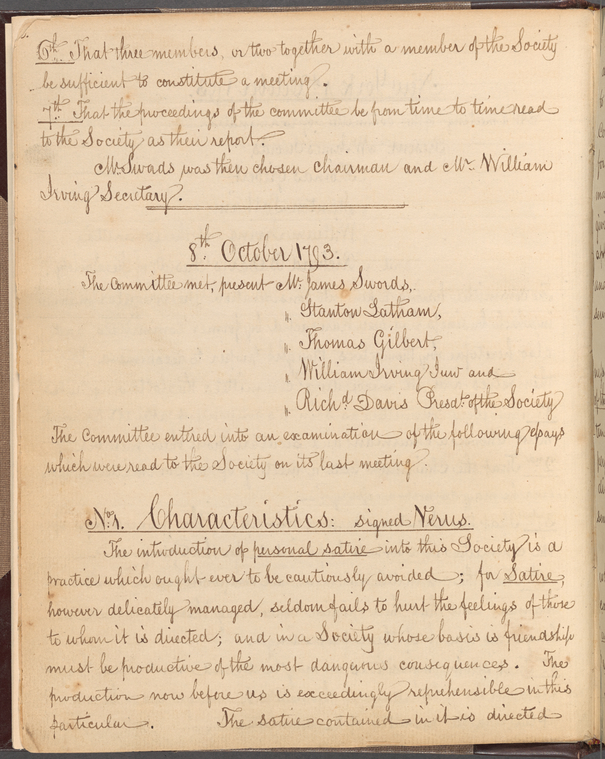 6th. That three members, or two together with a member of the Society
be sufficient to constitute a meeting.
7th. That the proceedings of the committee be from time to time read
to the Society as their report.
Mr Swords was then chosen chairman and Mr. William
Irving Secretary.
8th. October 1793.
The Committee met, present Mr. James Swords,
" Stanton Latham,
" Thomas Gilbert,
" William Irving Junr and
" Richd. Davis Presdt. of the Society
The Committee entered into an examination of the following essays
which were read to the Society on its last meeting.
No. 1. Characteristics: signed Nerus.
The introduction of personal satire into this Society is a
practice which ought ever to be cautiously avoided; for Satire,
however delicately managed, seldom fails to hurt the feelings of those
to whom it is directed; and in a Society whose basis is friendship
must be productive of the most dangerous consequences. The
production now before us is exceedingly reprehensible in this
particular. The satire contained in it is directed